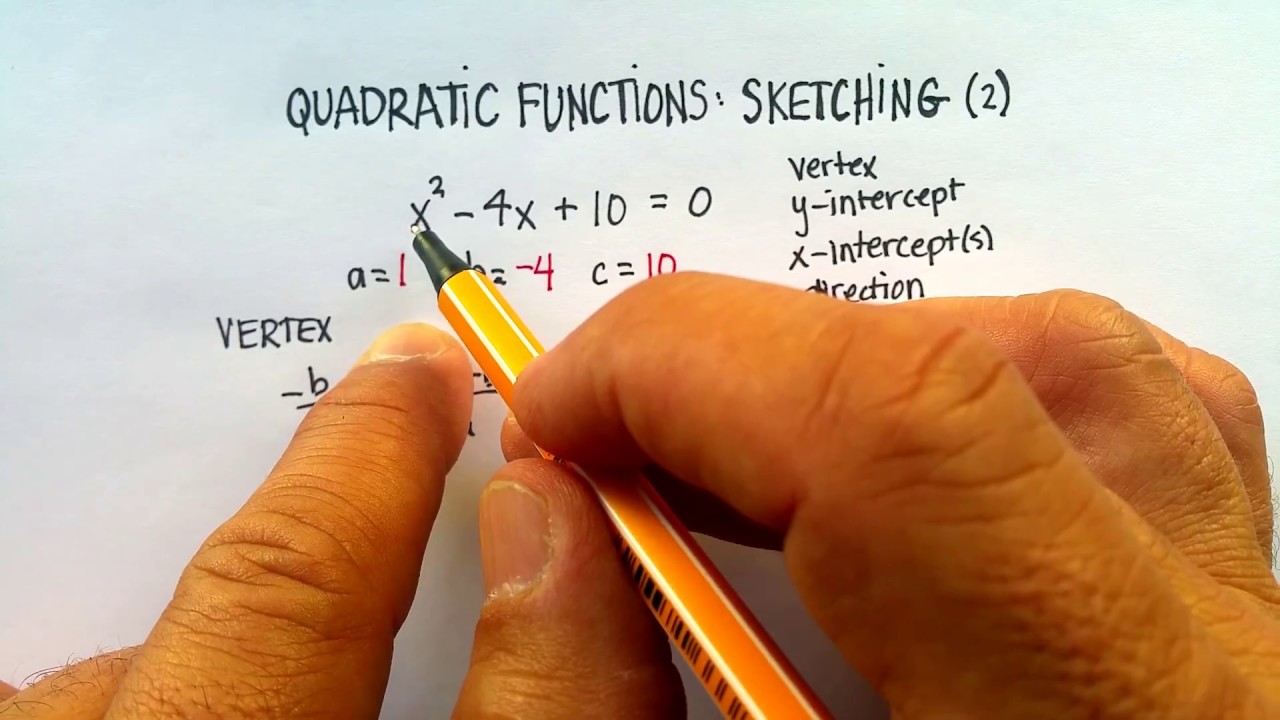 QUADRATIC FUNCTIONS: SKETCHING (2)
x² - 4x + 10 = 0
a = 1 b = -4 c = 10
vertex
y-intercept
x-intercept(s)
direction
VERTEX
-b